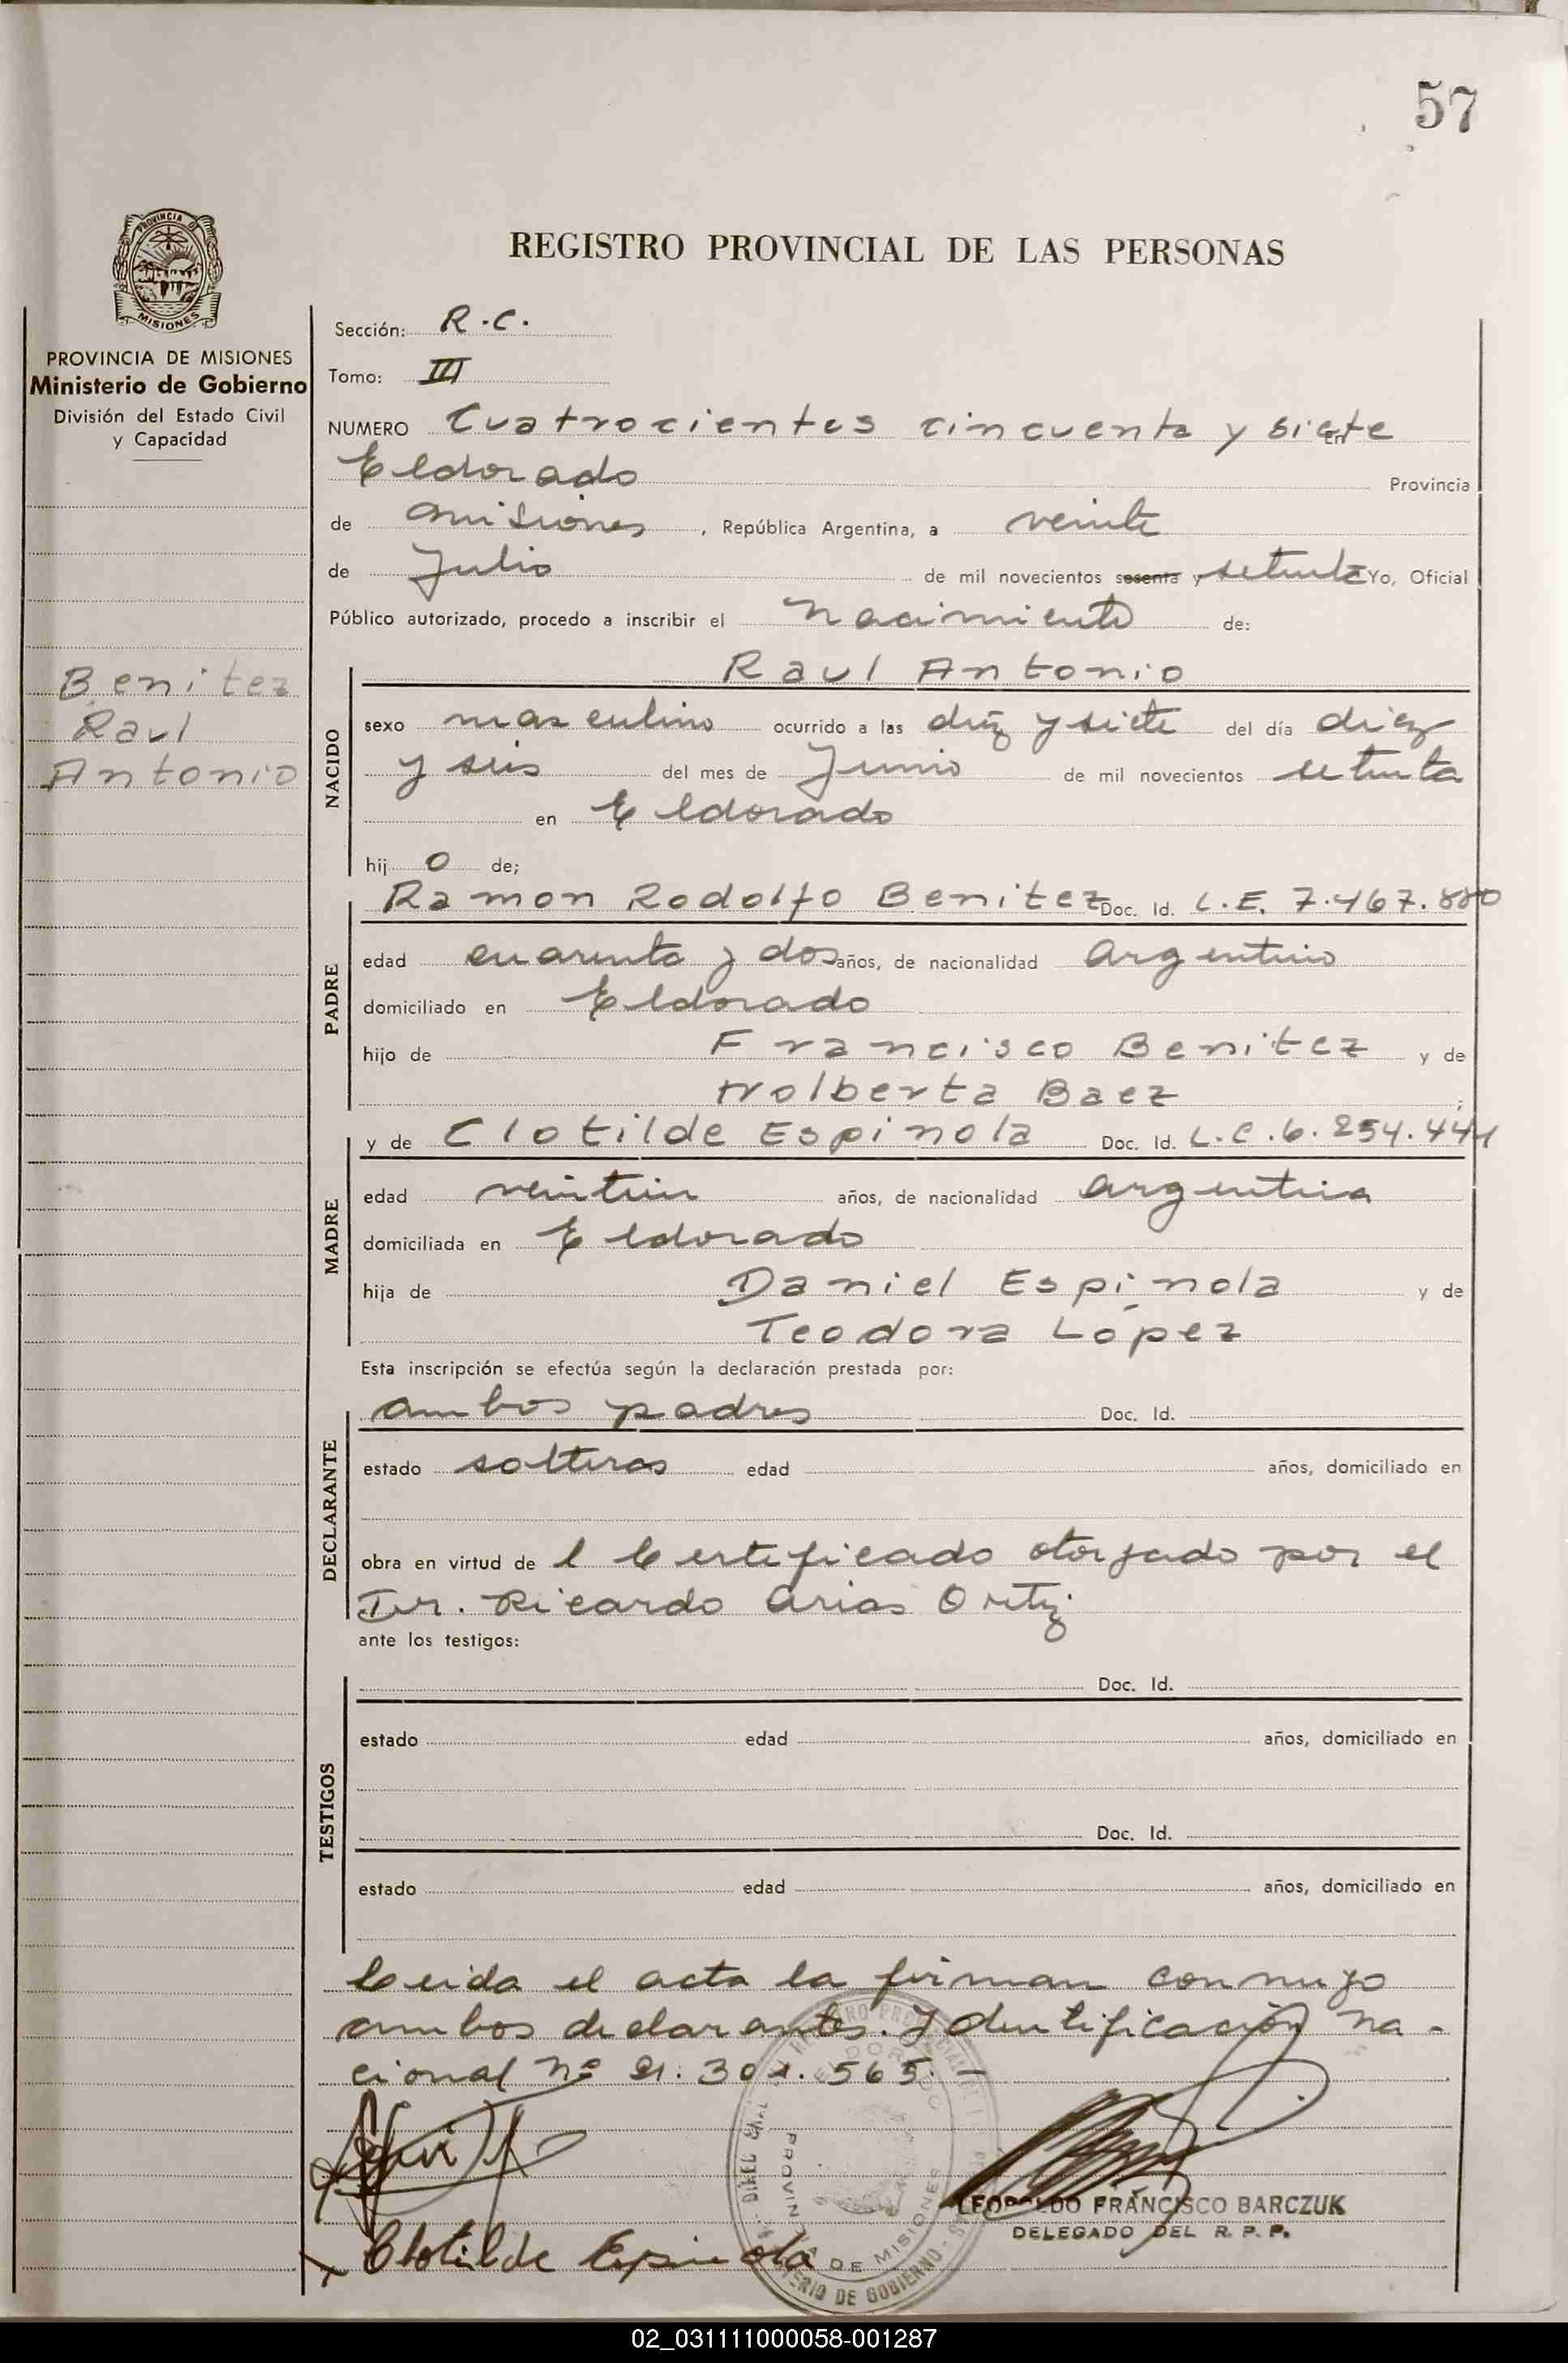 57
PROVINCIA DE
MISIONES
PROVINCIA DE MISIONES
Ministerio de Gobierno
División del Estado Civil
y Capacidad
Benitez
Raul
Antonio
REGISTRO PROVINCIAL DE LAS PERSONAS
Sección: R.C.
Tomo: III
NUMERO Cuatrocientos cincuenta y siete en
Eldorado Provincia
de Misiones, República Argentina, a veinte
de Julio de mil novecientos sesenta y setenta Yo, Oficial
Público autorizado, procedo a inscribir el Nacimiento de:
Raul Antonio
NACIDO
sexo masculino ocurrido a las diez y siete del día diez
y seis del mes de Junio de mil novecientos setenta
en Eldorado
hij o de;
Ramon Rodolfo Benitez Doc. Id. L.E. 7.467.880
PADRE
edad cuarenta y dos años, de nacionalidad Argentino
domiciliado en Eldorado
hijo de Francisco Benitez y de
Nolberta Baez;
y de Clotilde Espinola Doc. Id. L.C. 6.254.441
MADRE
edad años, de nacionalidad Argentina
domiciliada en Eldorado
hija de Daniel Espinola y de
Teodora López
Esta inscripción se efectúa según la declaración prestada por:
ambos padres Doc. Id.
DECLARANTE
estado solteros edad años, domiciliado en
obra en virtud de l Certificado otorgado por el
Dr. Ricardo Arias Ortiz
ante los testigos:
Doc. Id.
TESTIGOS
estado edad años, domiciliado en
Doc. Id.
estado edad años, domiciliado en
Leida el acta la firman conmigo
ambos declarantes. Identificación Na-
cional Nº 21.301.565.-
LEOPOLDO FRANCISCO BARCZUK
DELEGADO DEL R. P. P.
Clotilde Espinola
PROVINCIA DE MISIONES
MINISTERIO DE GOBIERNO
02_031111000058-001287